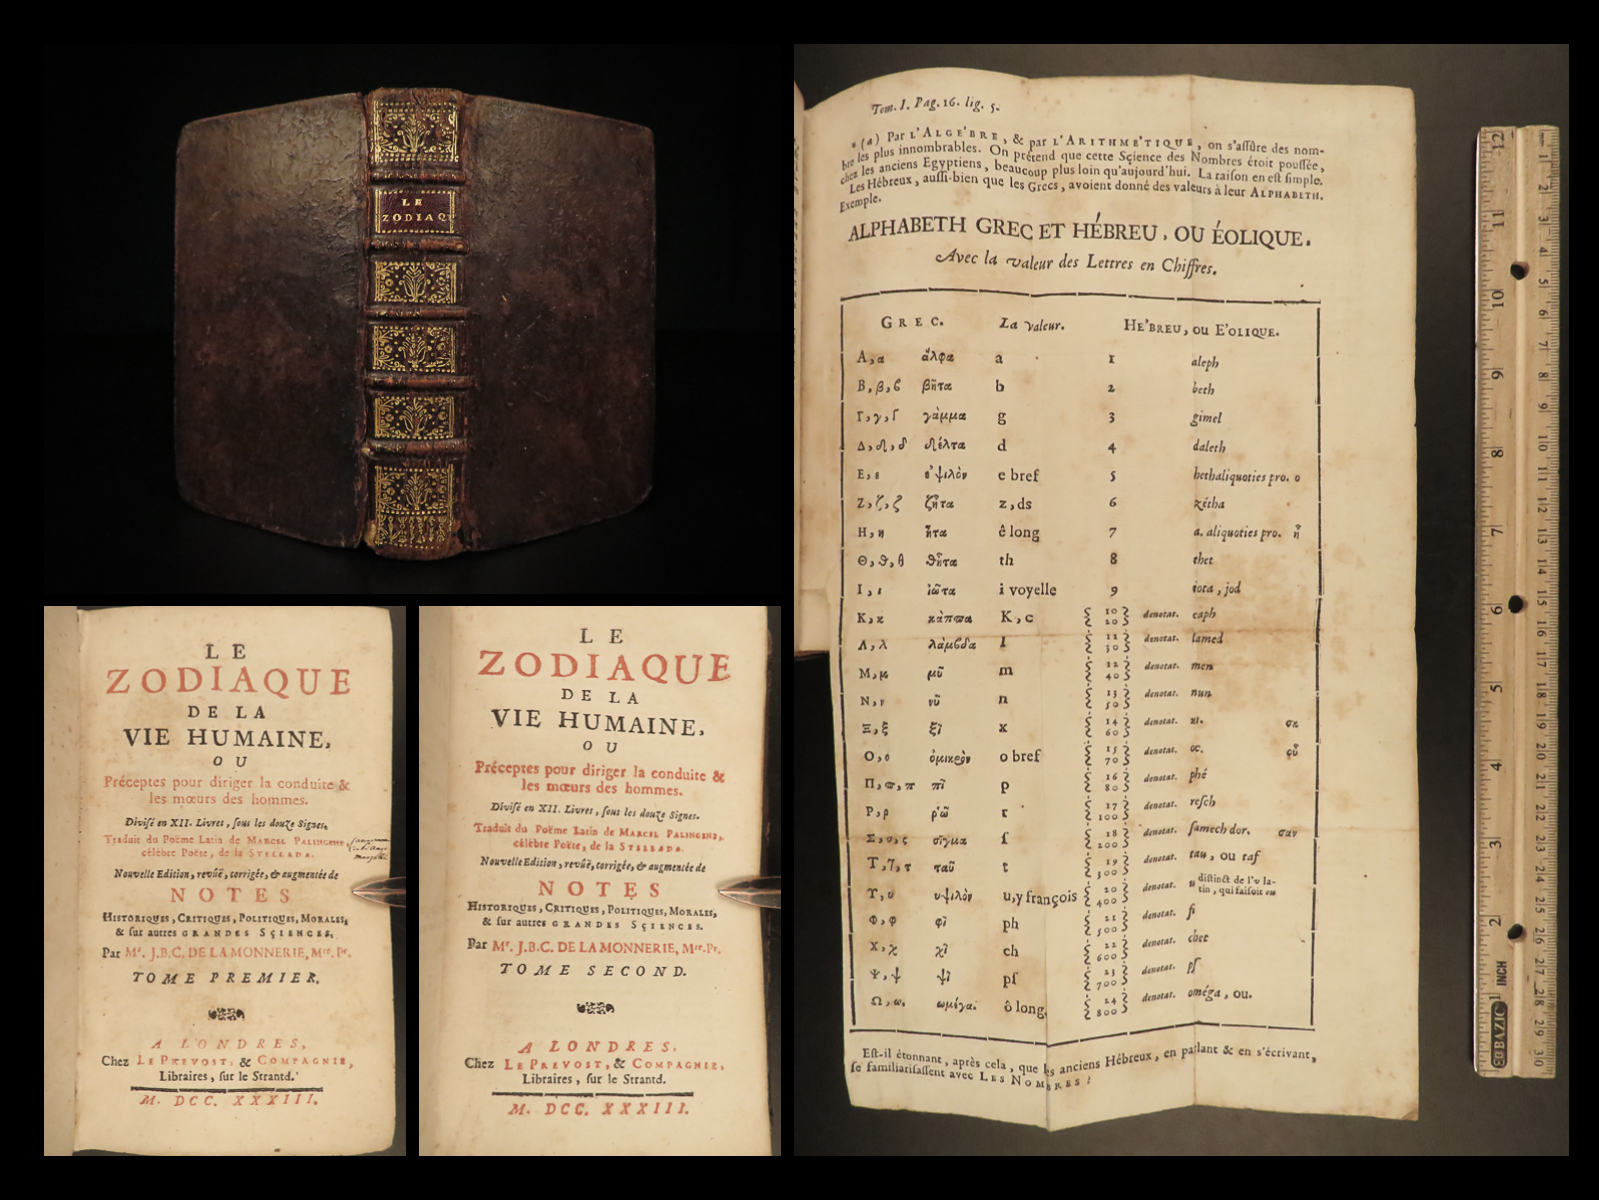 LE
ZODIAQ
LE
ZODIAQUE
DE LA
VIE HUMAINE,
OU
Préceptes pour diriger la conduite &
les mœurs des hommes.
Divisé en XII. Livres, sous les douze Signes.
Traduit du Poëme Latin de MARCEL PALINGENE,
célèbre Poëte, de la STELLADA.
Nouvelle Edition, revûë, corrigée, & augmentée de
NOTES
HISTORIQUES, CRITIQUES, POLITIQUES, MORALES,
& sur autres GRANDES SÇIENCES.
Par Mr. J.B.C. DE LA MONNERIE, Mtre. Pr.
TOME PREMIER.
A LONDRES,
Chez LE PREVOST, & COMPAGNIE,
Libraires, sur le Strantd.
M. DCC. XXXIII.
LE
ZODIAQUE
DE LA
VIE HUMAINE,
OU
Préceptes pour diriger la conduite &
les mœurs des hommes.
Divisé en XII. Livres, sous les douze Signes.
Traduit du Poëme Latin de MARCEL PALINGENE,
célèbre Poëte, de la STELLADA.
Nouvelle Edition, revûë, corrigée, & augmentée de
NOTES
HISTORIQUES, CRITIQUES, POLITIQUES, MORALES,
& sur autres GRANDES SÇIENCES.
Par Mr. J.B.C. DE LA MONNERIE, Mtre. Pr.
TOME SECOND.
A LONDRES,
Chez LE PREVOST, & COMPAGNIE,
Libraires, sur le Strantd.
M. DCC. XXXIII.
Tom. I. Pag. 16. lig. 5.
(a) Par L'ALGE'BRE, & par L'ARITHME'TIQUE, on s'assûre des nom-
bre les plus innombrables. On prétend que cette Sçience des Nombres étoit poussée,
chez les anciens Egyptiens, beaucoup plus loin qu'aujourd'hui. La raison en est simple.
Les Hébreux, aussi-bien que les Grecs, avoient donné des valeurs à leur ALPHABETH.
Exemple.
ALPHABETH GREC ET HÉBREU, OU ÉOLIQUE.
Avec la valeur des Lettres en Chiffres.
GREC. La valeur. HE'BREU, OU E'OLIQUE.
Α, α ἄλφα a 1 aleph
Β, β, ϐ βῆτα b 2 beth
Γ, γ, Γ γάμμα g 3 gimel
Δ, δ, δ δέλτα d 4 daleth
Ε, ε ε'ψιλὸν e bref 5 hethaliquoties pro. o
Ζ, ζ, ζ ζῆτα z, ds 6 zétha
Η, η ἦτα ê long 7 a. aliquoties pro. ἦ
Θ, ϑ, θ ϑῆτα th 8 thet
Ι, ι ἰῶτα i voyelle 9 iota, jod
Κ, κ κάππα K, c 10 20 denotat. caph
Λ, λ λάμϐδα l 11 30 denotat. lamed
Μ, μ μῦ m 12 40 denotat. men
Ν, ν νῦ n 13 50 denotat. nun
Ξ, ξ ξῖ x 14 60 denotat. xi. σκ
Ο, ο ὀμικρὸν o bref 15 70 denotat. oc. οὖ
Π, ϖ, π πῖ p 16 80 denotat. phé
Ρ, ρ ῥῶ r 17 100 denotat. resch
Σ, σ, ς σῖγμα s 18 200 denotat. samech dor. σαν
Τ, 7, τ ταῦ t 19 300 denotat. tau, ou taf
Υ, υ υ·ψιλὸν u, y françois 20 400 denotat. u distinct de l'u la-
tin, qui faisoit ou
Φ, φ φῖ ph 21 500 denotat. fi
Χ, χ χῖ ch 22 600 denotat. chet
Ψ, ψ ψῖ ps 23 700 denotat. ps
Ω, ω. ωμέγα. ô long. 24 800 denotat. oméga, ou.
Est-il étonnant, après cela, que les anciens Hébreux, en parlant & en s'écrivant,
se familiarisassent avec LES NOMBRES?
12 11 10 9 8 7 6 5 4 3 2 1 INCH
BAZIC
1 2 3 4 5 6 7 8 9 10 11 12 13 14 15 16 17 18 19 20 21 22 23 24 25 26 27 28 29 30